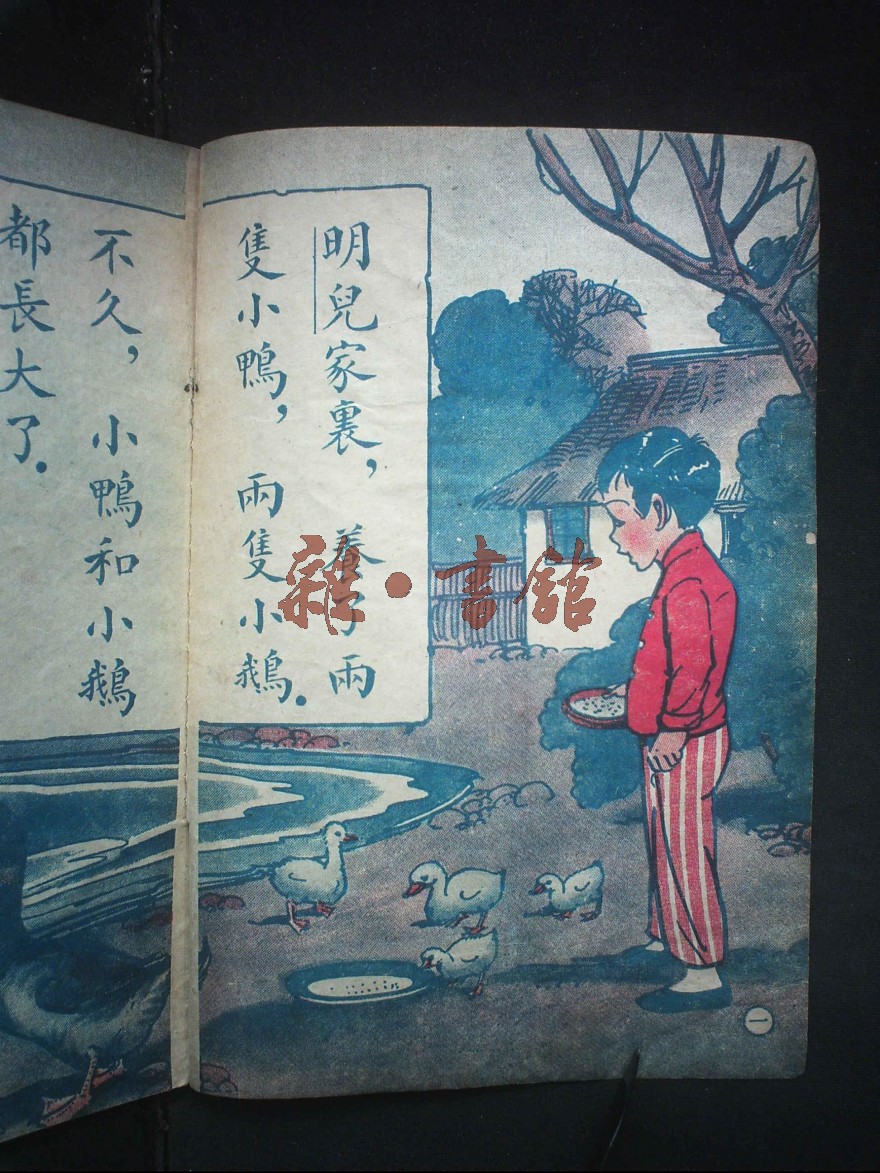 明兒家裏，養了兩
隻小鴨，兩隻小鵝．
不久，小鴨和小鵝
都長大了．
一
雜·書館